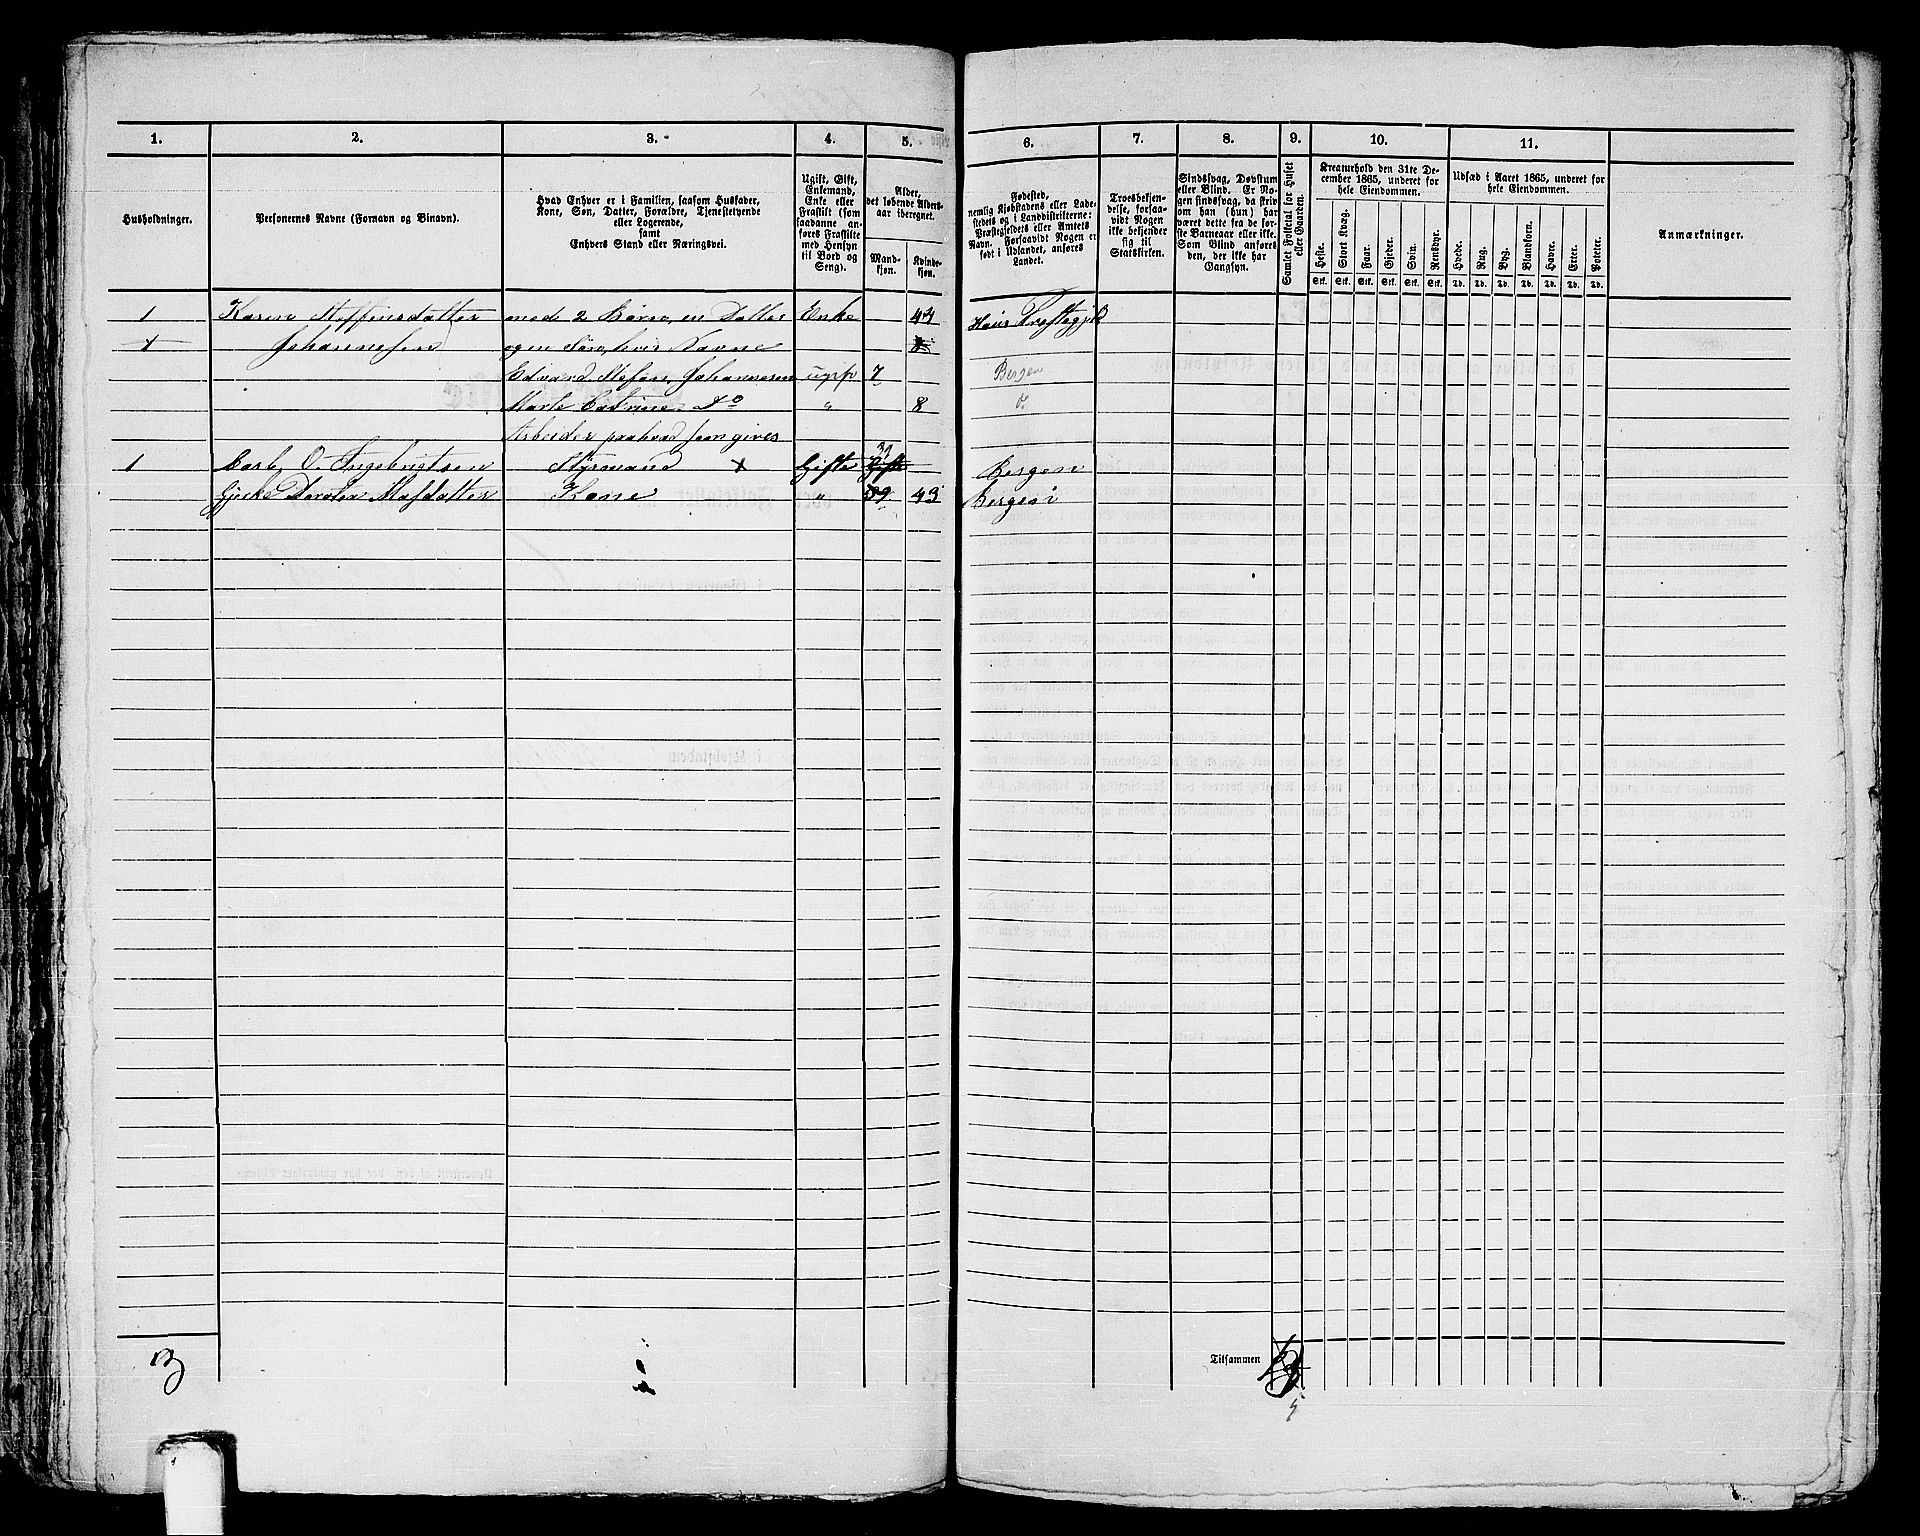 1. 2. 3. 4. 5. 6. 7. 8. 9. 10. 11.
Husholdninger.
Personernes Navne (Fornavn og Binavn).
Hvad Enhver er i Familien, saasom Husfader,
Kone, Søn, Datter, Forældre, Tjenestetyende
eller Logerende,
samt
Enhvers Stand eller Næringsvei.
Ugift, Gift,
Enkemand,
Enke eller
Fraskilt (som
saadanne an-
føres Fraskilte
med Hensyn
til Bord og
Seng).
Alder,
det løbende Alders-
aar iberegnet.
Mand-
kjøn.
Kvinde-
kjøn.
Fødested,
nemlig Kjøbstadens eller Lade-
stedets og i Landdistrikterne:
Præstegjeldets eller Amtets
Navn. Forsaavidt Nogen er
født i Udlandet, anføres
Landet.
Troesbekjen-
delse, forsaa-
vidt Nogen
ikke bekjender
sig til
Statskirken.
Sindssvag, Døvstum
eller Blind. Er No-
gen sindssvag, da skriv
om han (hun) har
været dette fra de før-
ste Barneaar eller ikke.
Som Blind anføres
den, der ikke har
Gangsyn.
Samlet Folketal for Huset
eller Gaarden.
Kreaturhold den 31te De-
cember 1865, underet for
hele Eiendommen.
Heste.
Stort Kvæg.
Faar.
Gjeder.
Svin.
Rensdyr.
Stk. Stk. Stk. Stk. Stk. Stk.
Udsæd i Aaret 1865, underet for
hele Eiendommen.
Hvede.
Rug.
Byg.
Blandkorn.
Havre.
Erter.
Poteter.
Td. Td. Td. Td. Td. Td. Td.
Anmærkninger.
1 Karen Steffensdatter med 2 Børn, en Datter Enke 44 Haus Præstegjeld
Johannesen og en Søn, hvis Navne
Edvard Stefan Johannesen ugift 7 Bergen
Marte Catrine Do " 8 D.
Arbeider paa hvad som gives
1 Carl O. Ingebrigtsen Styrmand x Gifte 39 Bergen
Dorotea Kone " 43 Bergen
3
Tilsammen
5